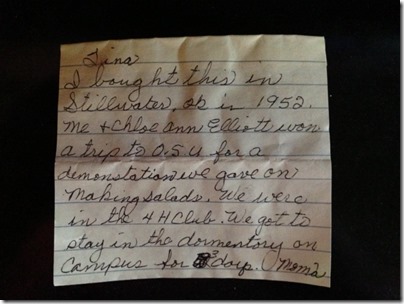 Tina
I bought this in
Stillwater, ok in 1952.
Me & Chloe Ann Elliott won
a trip to O.S.U for a
demonstation we gave on
Making salads. We were
in the 4 H Club. We got to
stay in the dormentory on
Campus for 3 days. (Moma